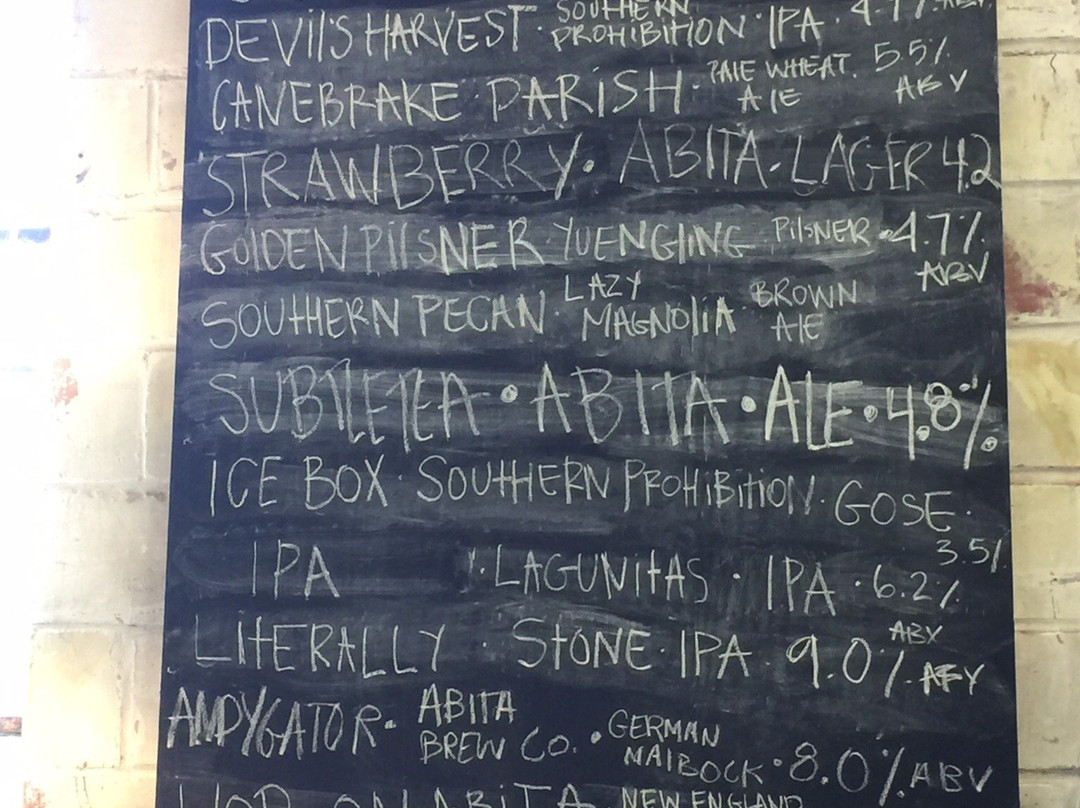 DEVIL'S HARVEST · SOUTHERN PROHIBITION · IPA · 4.9%
CANEBRAKE · PARISH · PALE WHEAT. ALE 5.5% ABV
STRAWBERRY · ABITA · LAGER 4.2
GOLDEN PILSNER YUENGLING PILSNER · 4.7% ABV
SOUTHERN PECAN · LAZY MAGNOLIA BROWN ALE
SUBTLETEA · ABITA · ALE · 4.8%
ICE BOX · SOUTHERN PROHIBITION · GOSE · 3.5%
IPA · LAGUNITAS · IPA · 6.2% ABV
LITERALLY · STONE · IPA · 9.0% ABV
ANDYGATOR · ABITA BREW CO. · GERMAN MAIBOCK · 8.0% ABV
HOP ON ABITA NEW ENGLAND